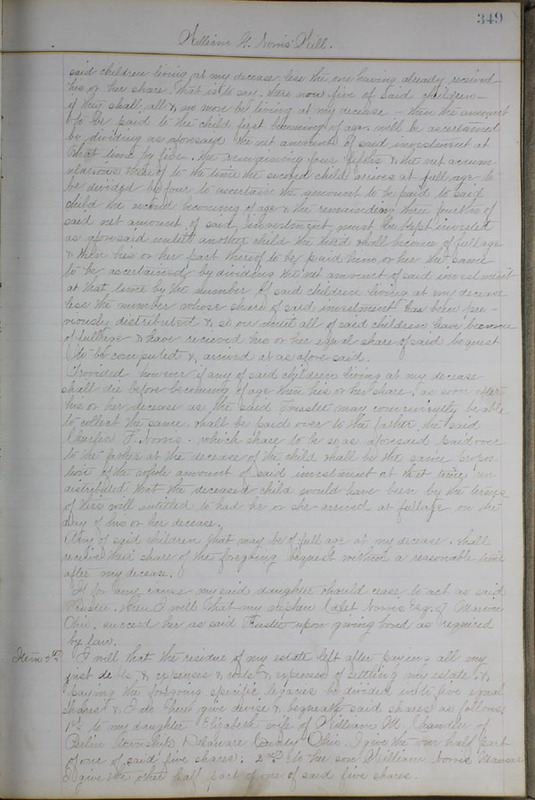 349
William H. Norris' Will.
said children living at my decease less the one having already received
his or her share. That is to say. there now five of said children—
if they shall all & no more be living at my decease — then the amount
to be paid to the child first becoming of age. will be ascertained
by dividing as aforesaid the net amount of said investment at
that time by five. the remaining four fifths & the net accum-
ulations thereof to the time the second child arrives at full age to
be divided by four to ascertain the amount to be paid to said
child the second becoming of age & the remaining three fourths of
said net amount of said investment must be kept invested
as aforesaid until another child the third shall become of full age
& then his or her part thereof to be paid him or her the same
to be ascertained by dividing the net amount of said investment
at that time by the number of said children living at my decease
less the number whose share of said investment has been pre-
viously distributed & so on until all of said children have become
of full age & have received his or her equal share of said bequest
to be computed & arrived at as afore said.
Provided however if any of said children living at my decease
shall die before becoming of age then his or her share, as soon after
his or her decease as the said Trustee may conveniently be able
to collect the same. shall be paid over to the father the said
Charles F. Norris. which share to be so as aforesaid paid over
to the father at the decease of the child shall be the same propor-
tion of the whole amount of said investment at that time un
distributed that the deceased child would have been by the terms
of this will entitled to had he or she arrived at full age on the
day of his or her decease.
Any of said children that may be of full age at my decease. shall
receive their share of the foregoing bequest within a reasonable time
after my decease.
If for any cause my said daughter should cease to act as said
Trustee. then I will that my nephew Calet Norris Esq. of Marion
Ohio. succeed her as said Trustee upon giving bond as required
by law.
Item 3rd I will that the residue of my estate left after paying all my
just debts, & expenses & costs & expenses of settling my estate & 
paying the foregoing specific legacies be divided into five equal
shares & I do then give devise & bequeath said shares as follows
1st to my daughter Elizabeth wife of William M. Chandler of
Berlin Township Delaware County Ohio. I give the one half part
of one of said five shares; 2nd to the son William Norris
I give the other half part of one of said five shares.